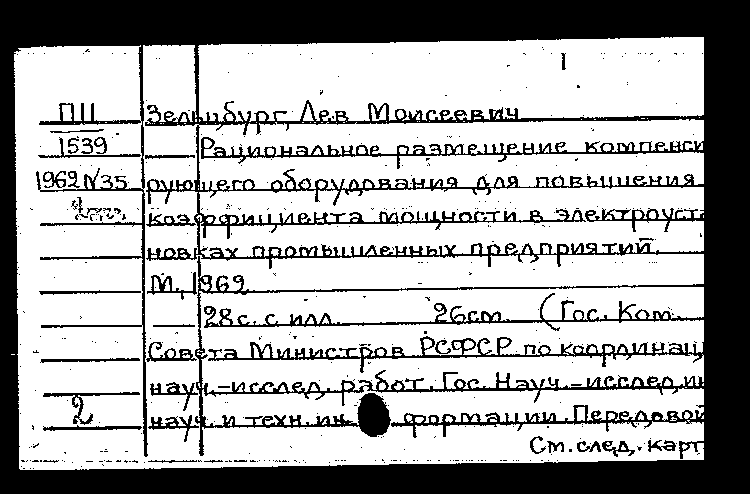 1
ПП Зельцбург, Лев Моисеевич
1539 Рациональное размещение компенси
1962 №35 рующего оборудования для повышения
коэффициента мощности в электроуста
новках промышленных предприятий.
М., 1962
28 с. с илл. 26см. (Гос. Ком.
Совета Министров РСФСР по координац
науч.-исслед. работ. Гос. Науч.-исслед. ин
2 науч. и техн. ин формации. Передовой
См. след. карт